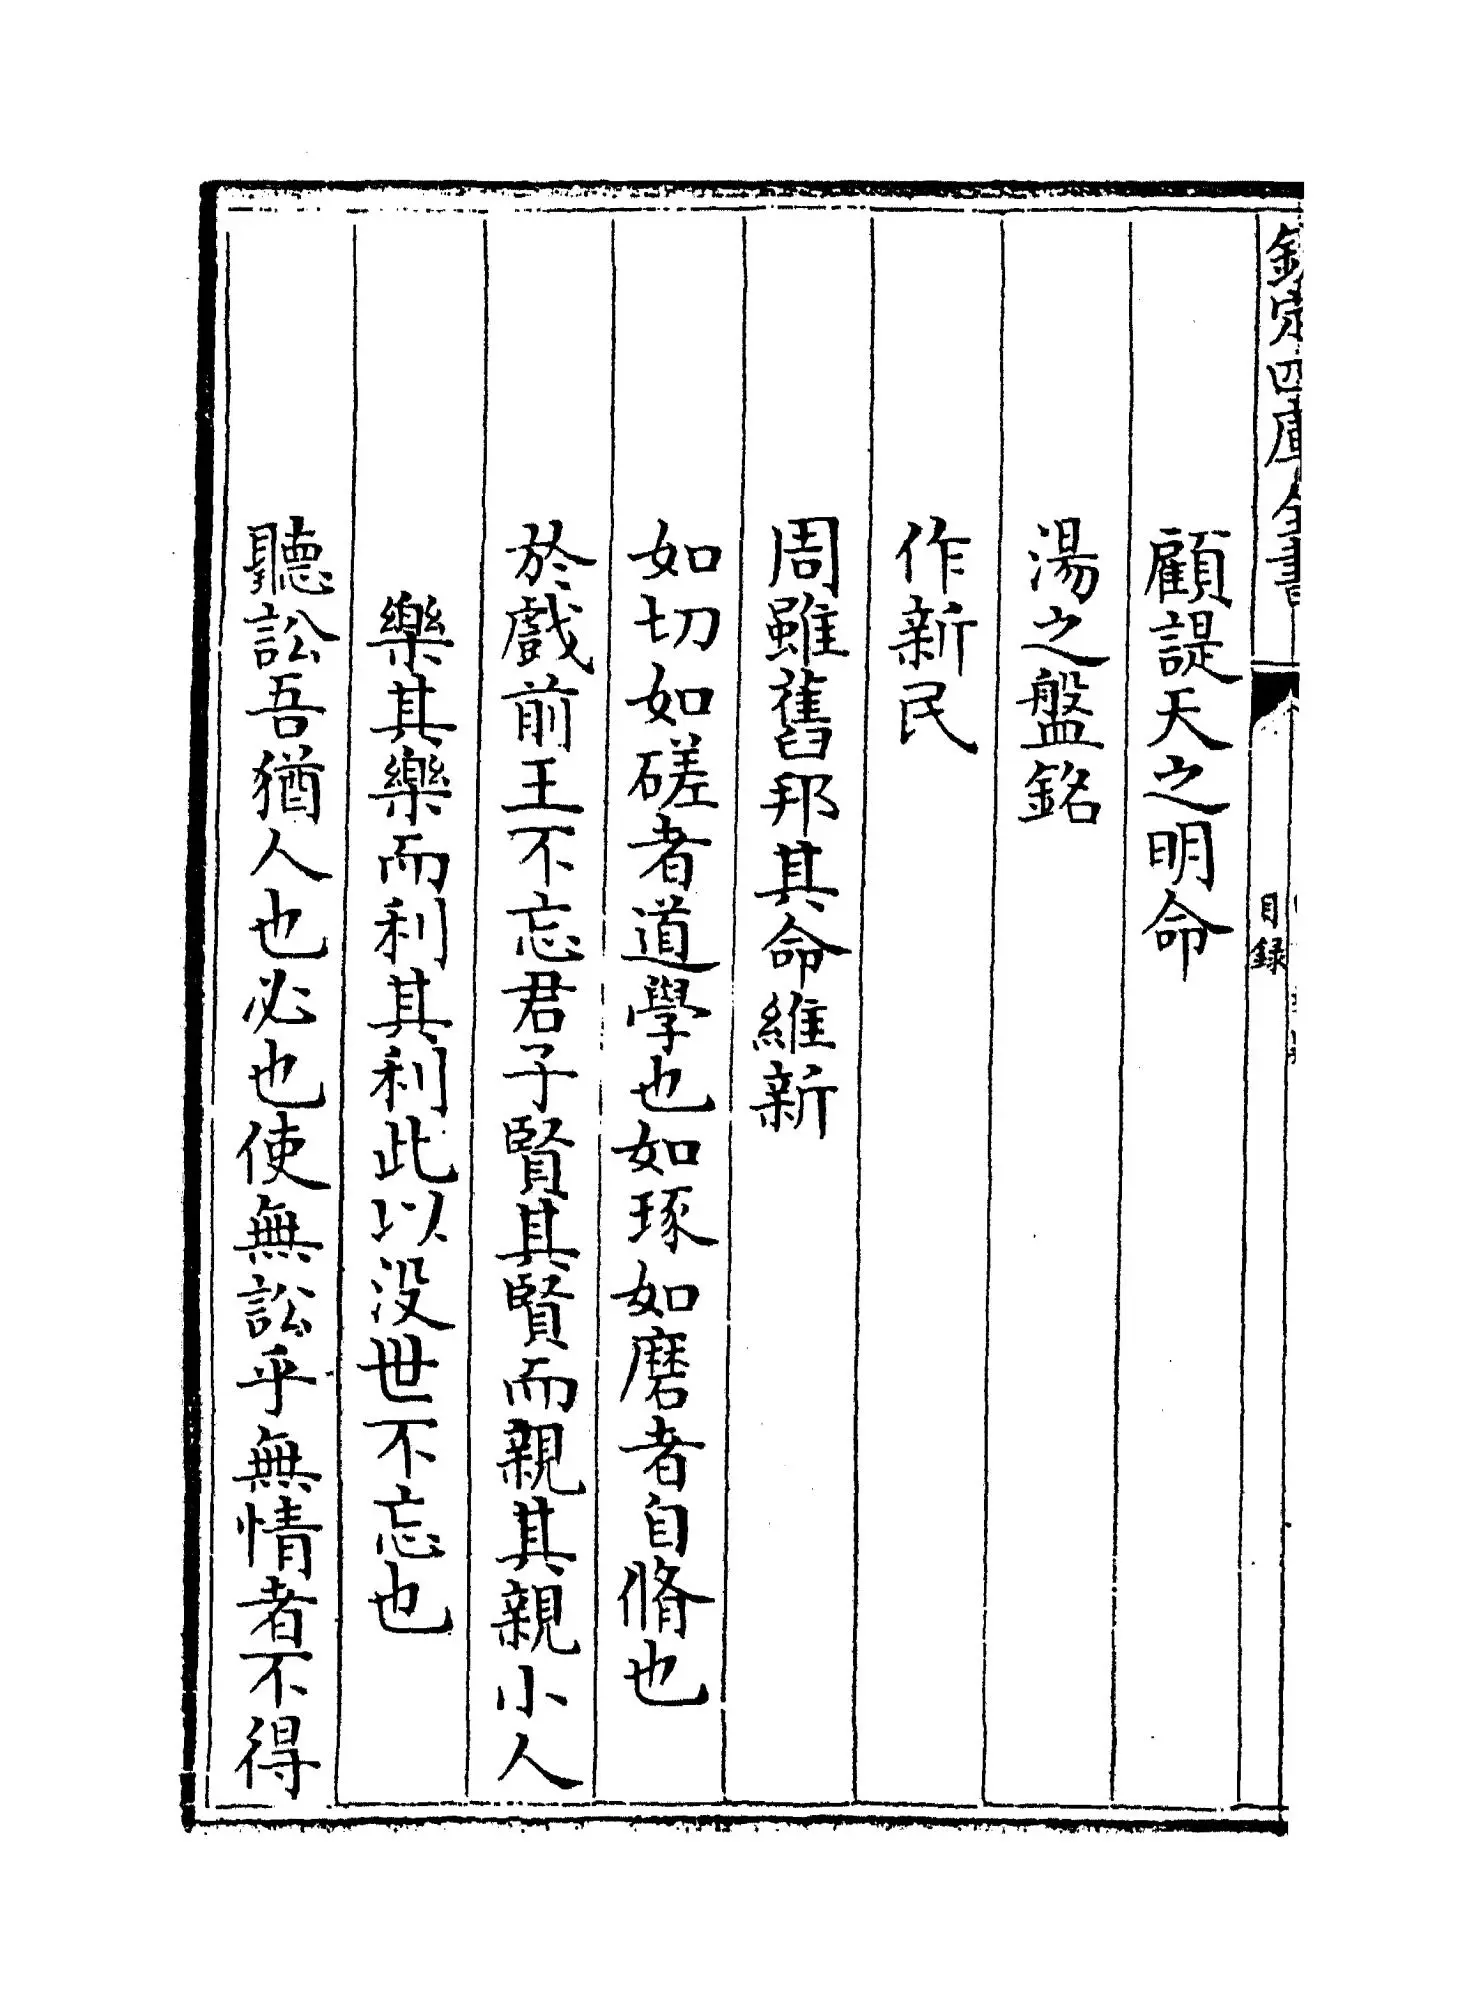 欽定四庫全書
目録
顧諟天之明命
湯之盤銘
作新民
周雖舊邦其命維新
如切如磋者道學也如琢如磨者自脩也
於戲前王不忘君子賢其賢而親其親小人
樂其樂而利其利此以没世不忘也
聽訟吾猶人也必也使無訟乎無情者不得